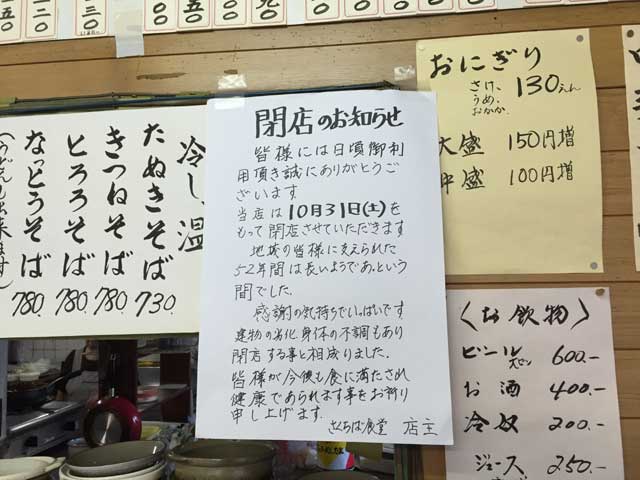 閉店のお知らせ
皆様には日頃御利
用頂き誠にありがとうご
ざいます
当店は10月31日(土)を
もって閉店させていただきます
地域の皆様に支えられた
52年間は長いようであっという
間でした。
感謝の気持ちでいっぱいです
建物の劣化身体の不調もあり
閉店する事と相成りました。
皆様が今後も食に満たされ
健康であられます事をお祈り
申し上げます
さくらば食堂 店主
冷し、温
たぬきそば 730
きつねそば 780
とろろそば 780
なっとうそば 780
(うどんも出来ます)
おにぎり
さけ、
うめ、
おかか
130えん
大盛 150円増
中盛 100円増
〈お飲物〉
ビール 大ビン 600.-
お酒 400.-
冷奴 200.-
ジュース 250.-